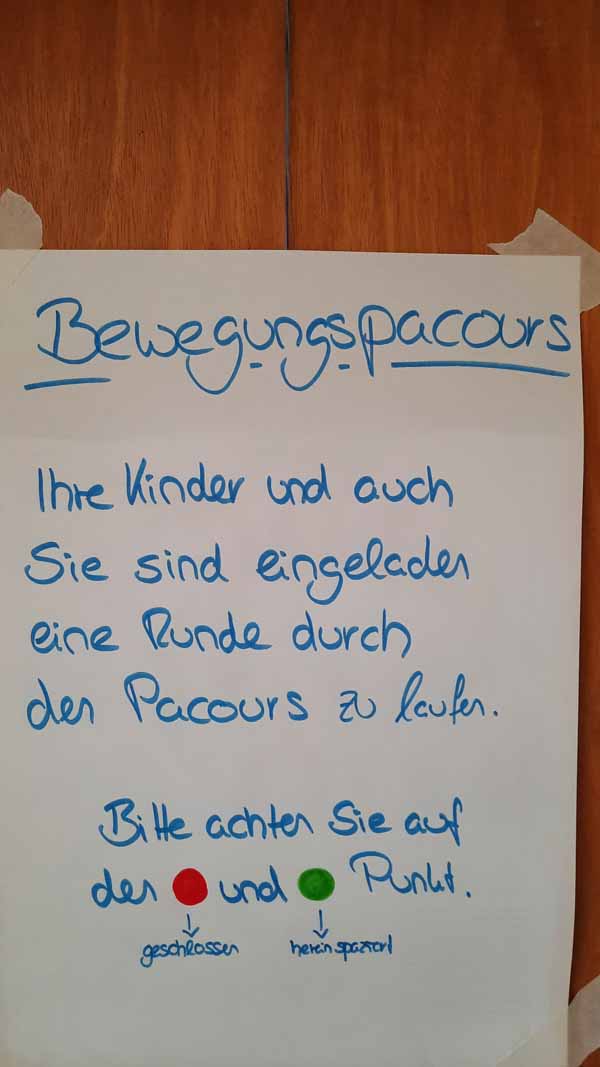 Bewegungspacours
Ihre Kinder und auch
Sie sind eingeladen
eine Runde durch
den Pacours zu laufen.
Bitte achten Sie auf
den und Punkt.
geschlossen hereinspaziert